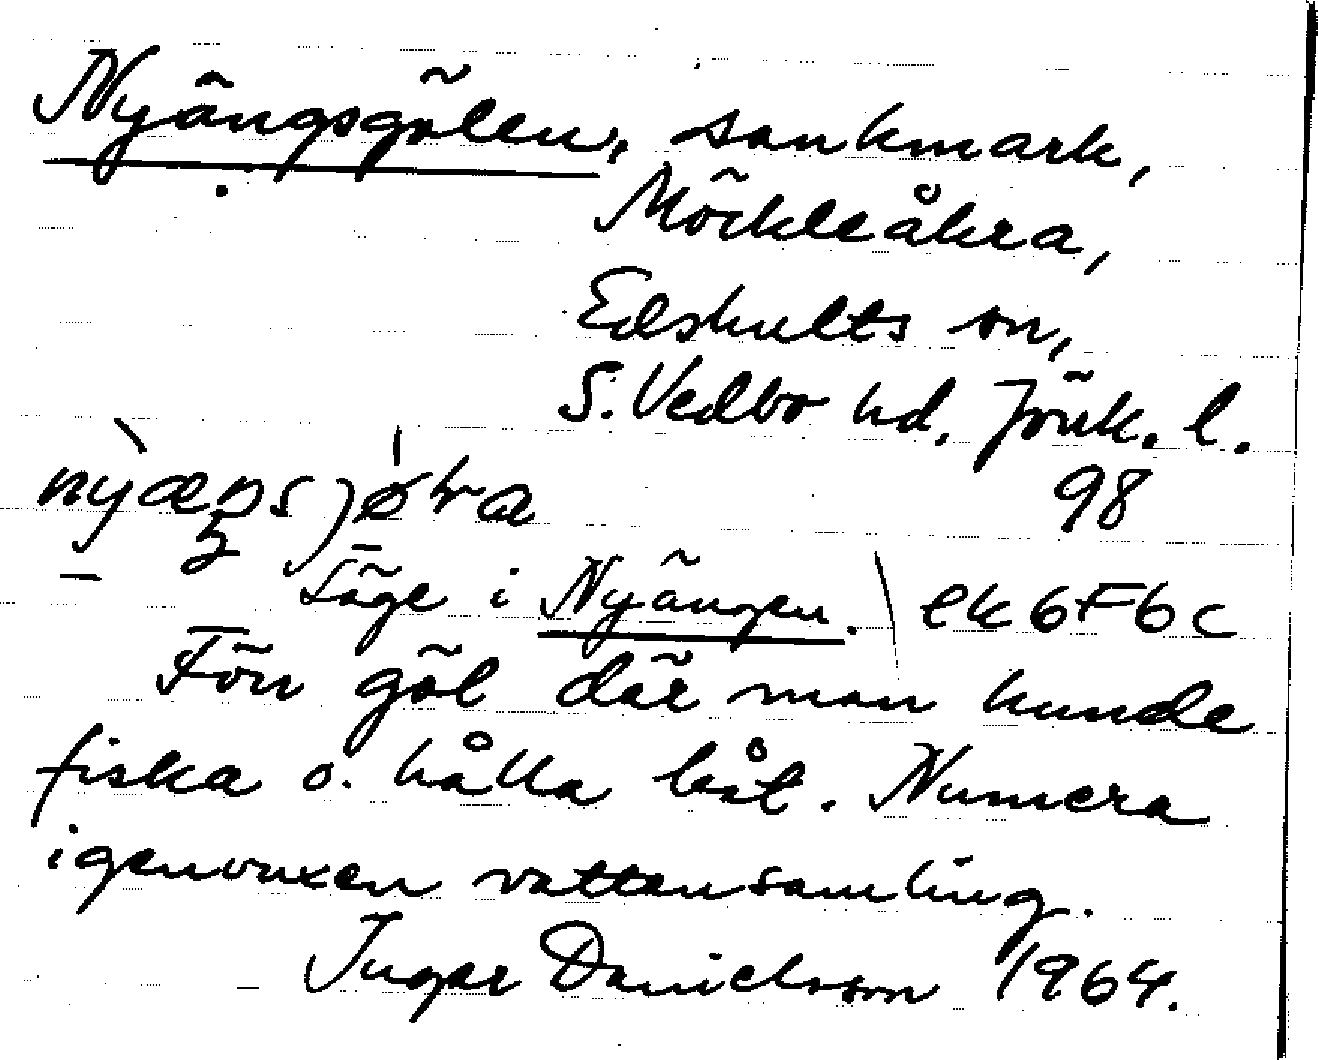 Nyängsgölen, sankmark,
Möckleåkra,
Edshults sn,
S. Vedbo hd, Jönk. l.
98
Läge i Nyängen. \ ek6F6c
Förr göl där man kunde
fiska o. hålla båt. Numera
igenvuxen vattensamling.
Ingar Danielsson 1964.